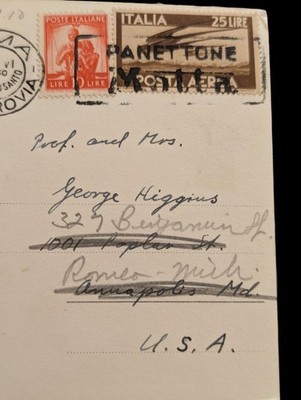 POSTE ITALIANE
LIRE 10 LIRE
ITALIA
25 LIRE
POSTA AEREA
PANETTONE
Motta
Prof. and Mrs.
George Higgins
327 Benjamin St.
1001 Poplar St.
Romeo - Mich.
Annapolis Md.
U. S. A.